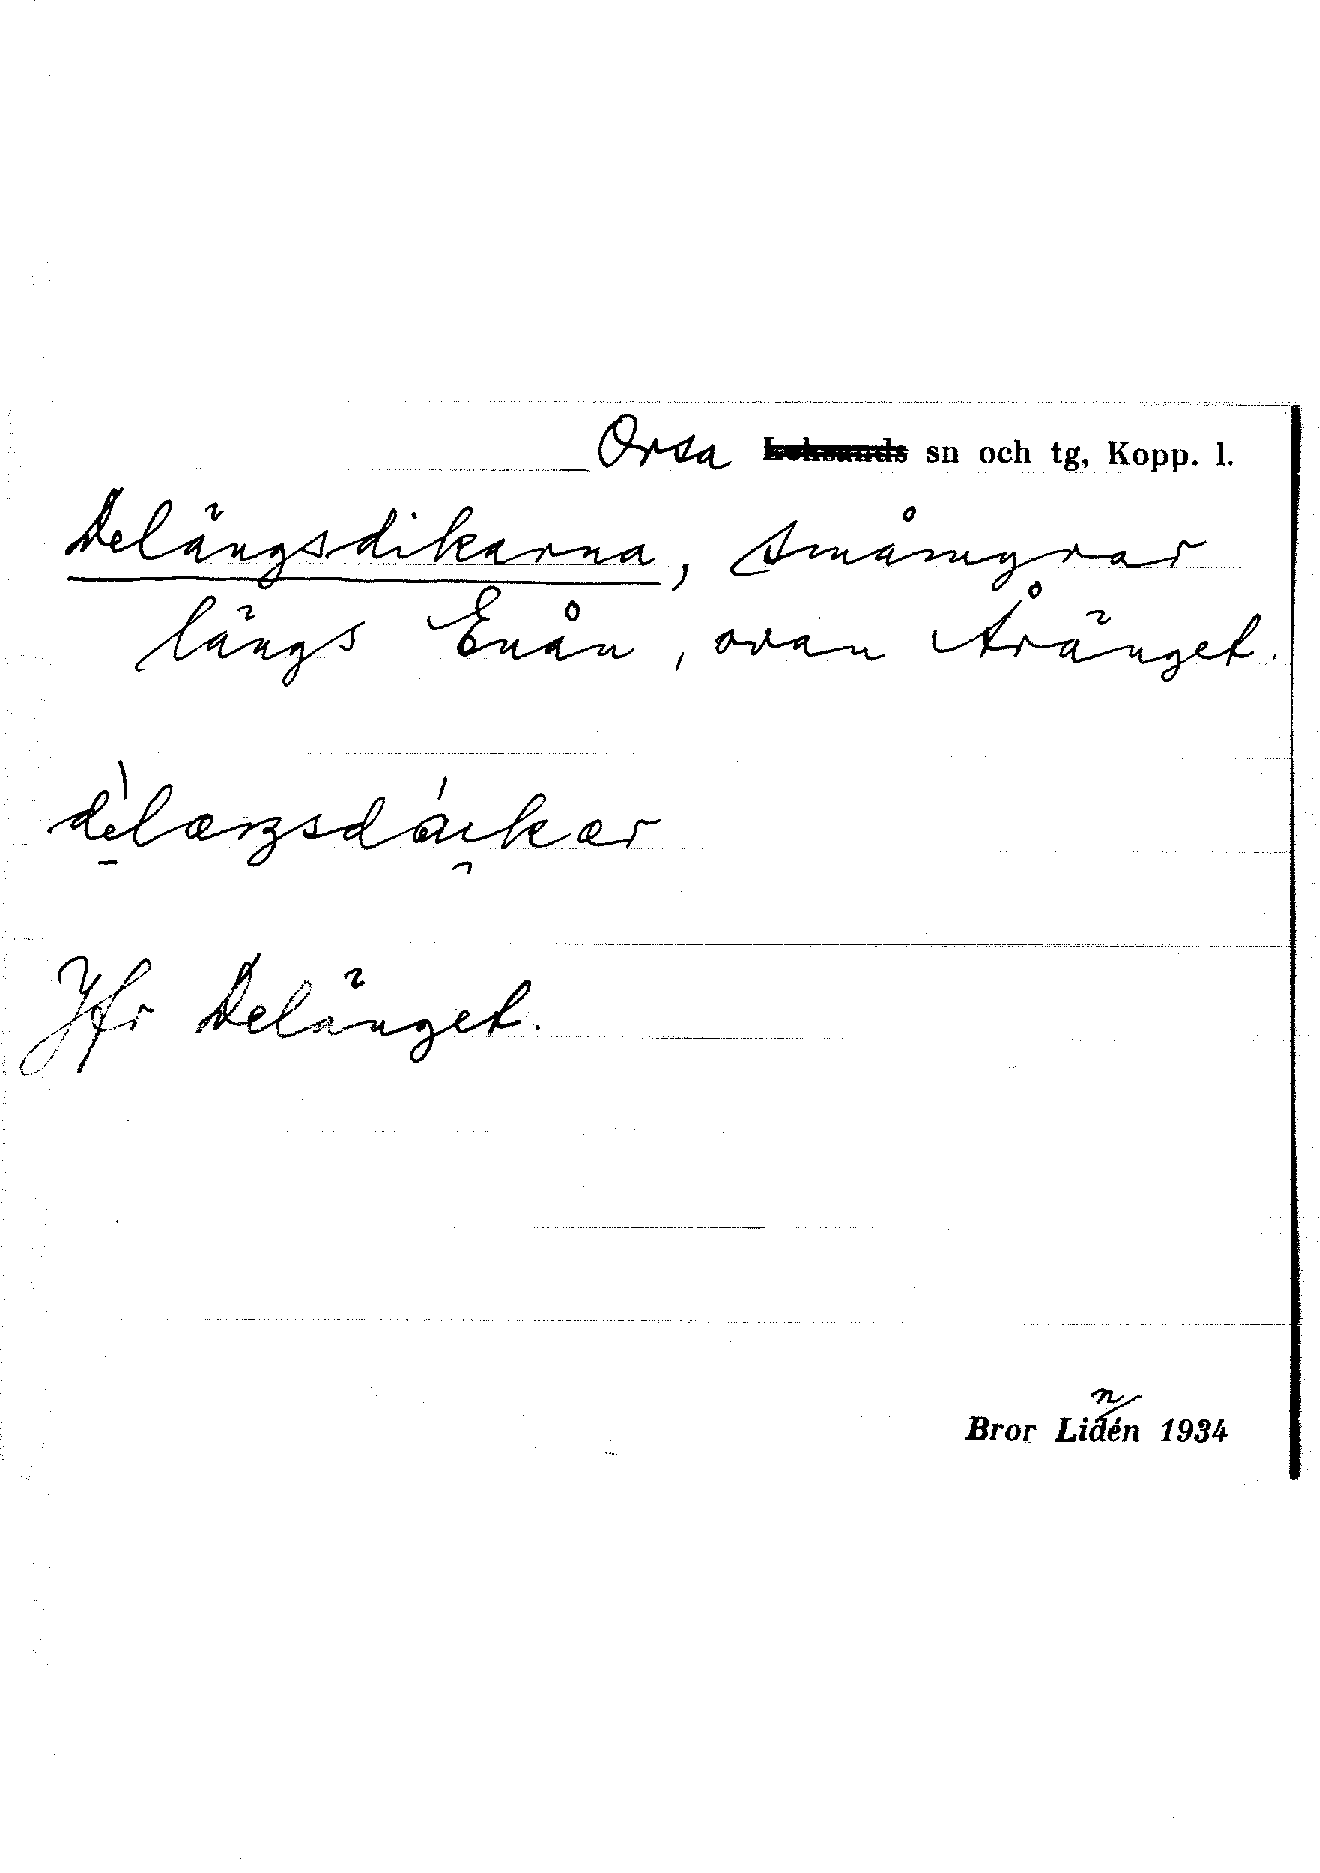 Orsa Leksands sn och tg, Kopp. l.
Delängsdikarna, småmyrar
längs Enån, ovan Åränget.
dèlæŋsdáikær
Jfr Delänget.
n
Bror Lidén 1934